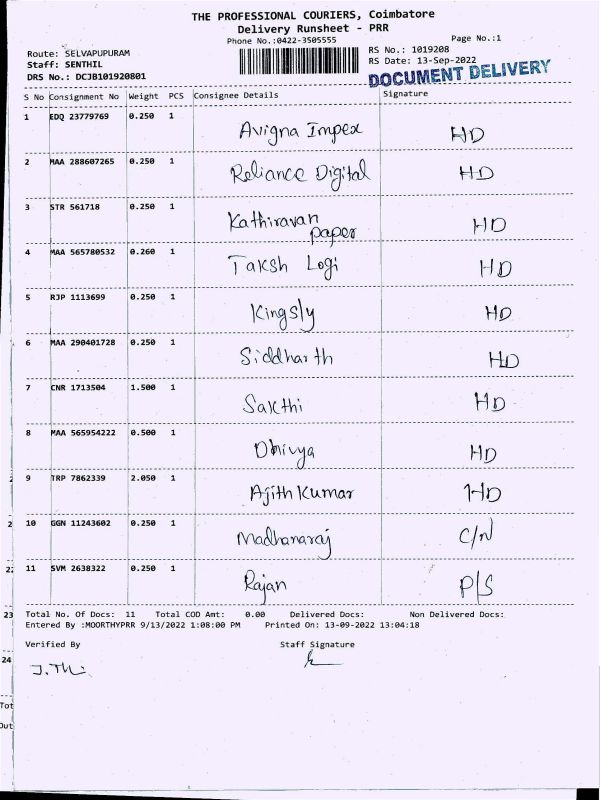 THE PROFESSIONAL COURIERS, Coimbatore
Delivery Runsheet - PRR
Phone No.:0422-3505555
Page No.:1
Route: SELVAPUPURAM
Staff: SENTHIL
DRS No.: DCJB101920801
RS No.: 1019208
RS Date: 13-Sep-2022
DOCUMENT DELIVERY
S No Consignment No Weight PCS Consignee Details Signature
1 EDQ 23779769 0.250 1 Avigna Impex HD
2 MAA 288607265 0.250 1 Reliance Digital HD
3 STR 561718 0.250 1 Kathiravan HD
paper
4 MAA 565780532 0.260 1 Taksh Logi HD
5 RJP 1113699 0.250 1 Kingsly HD
6 MAA 290401728 0.250 1 Siddharth HD
7 CNR 1713504 1.500 1 Sakthi HD
8 MAA 565954222 0.500 1 Dhivya HD
9 TRP 7862339 2.050 1 Ajith Kumar HD
10 GGN 11243602 0.250 1 Madhanaraj C/N
11 SVM 2638322 0.250 1 Rajan P/S
Total No. Of Docs: 11 Total COD Amt: 0.00 Delivered Docs: Non Delivered Docs:
Entered By :MOORTHYPRR 9/13/2022 1:08:00 PM Printed On: 13-09-2022 13:04:18
Verified By Staff Signature
23
24
Tot
Out